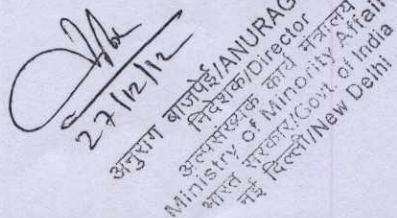 27/12/12
अनुराग बाजपेई/ANURAG
निदेशक/Director
अल्पसंख्यक कार्य मंत्रालय
Ministry of Minority Affair
भारत सरकार/Govt. of India
नई दिल्ली/New Delhi